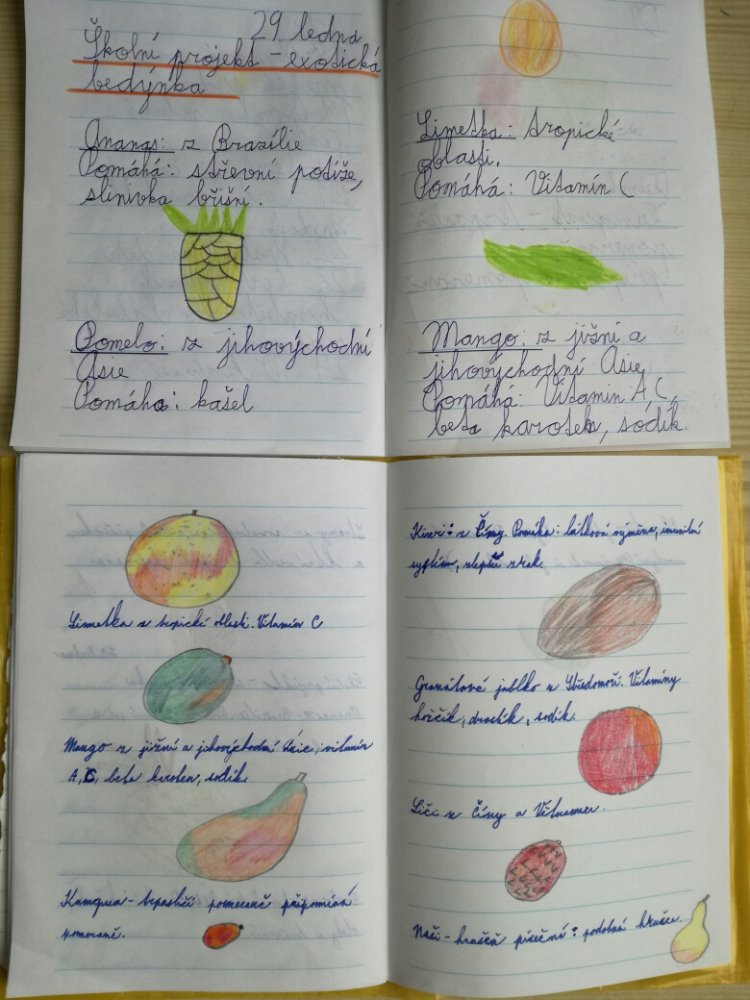 29. ledna
Školní projekt - exotická
bedýnka
Ananas: z Brazílie
Pomáhá: střevní potíže,
slinivka břišní.
Pomelo: z jihovýchodní
Asie
Pomáha: kašel
Limetka: tropické
oblasti.
Pomáhá: Vitamín C
Mango: z jižní a
jihovýchodní Asie
Pomáhá: Vitamin A, C,
beta karoten, sodík.
Limetka z tropické oblasti. Vitamín C
Mango z jižní a jihovýchodní Asie, vitamín
A, C, beta karoten, sodík.
Kumqua - trpasličí pomeranč připomíná
pomeranč.
Kiwi: z Číny. Pomáha: látková výměna, imunitní
systém, zlepší zrak.
Granátová jablko z Středomoří. Vitamíny
hořčík, draslík, sodík.
Liči z Číny a Vietnamu.
Naši - hrušeň písečná: podobná hrušce.